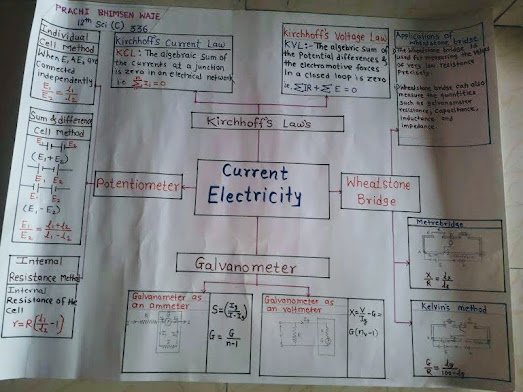 PRACHI BHIMSEN WAJE
12th Sci (C) 336
Individual
Cell Method
When E1 & E2 are
Connected
independently
E1/E2 = l1/l2
Sum & difference
Cell Method
E1 E2
(E1+E2)
E1 E2
(E1-E2)
E1/E2 = l1+l2/l1-l2
Internal
Resistance Method
Internal
Resistance of the
Cell
r=R(l1/l2 -1)
Kirchhoff's Current Law
KCL:- The algebraic Sum of
the Currents at a junction
is zero in an electrical network
i.e
Kirchhoff's Voltage Law
KVL:- The algebric Sum of
the Potential differences &
the electromotive forces
in a closed loop is zero
i.e. ΣIR + ΣE = 0
Applications of
Wheatstone bridge
The wheatstone bridge is
used for measuring the values
of very low resistance
Precisely
Wheatstone bridge can also
measure the quantities
such as galvanometer
resistance, Capacitance,
inductance and
impedance
Kirchhoff's Laws
Potentiometer
Current
Electricity
Wheatstone
Bridge
Galvanometer
Galvanometer as
an ammeter
G = G/n-1
Galvanometer as
an voltmeter
G(nv-1)
Metrebridge
Kelvin's method